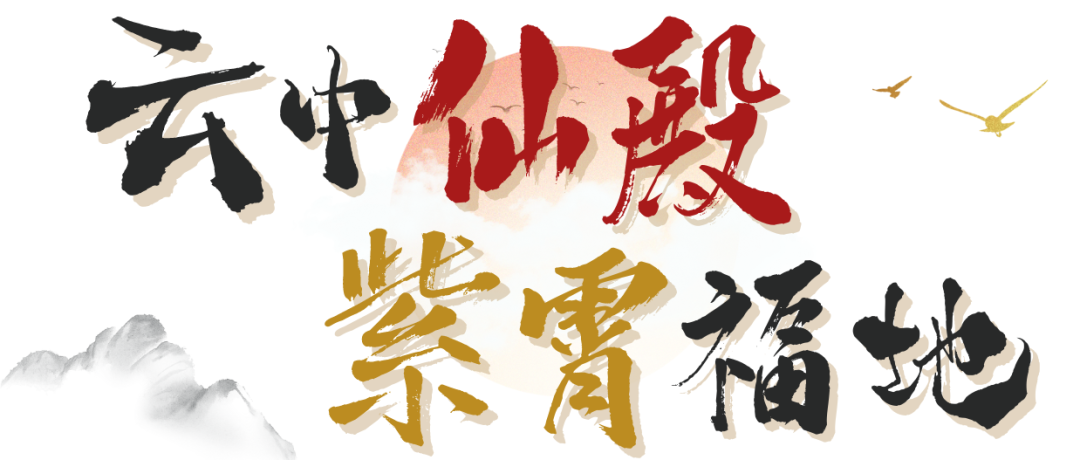 云中仙殿
紫霄福地